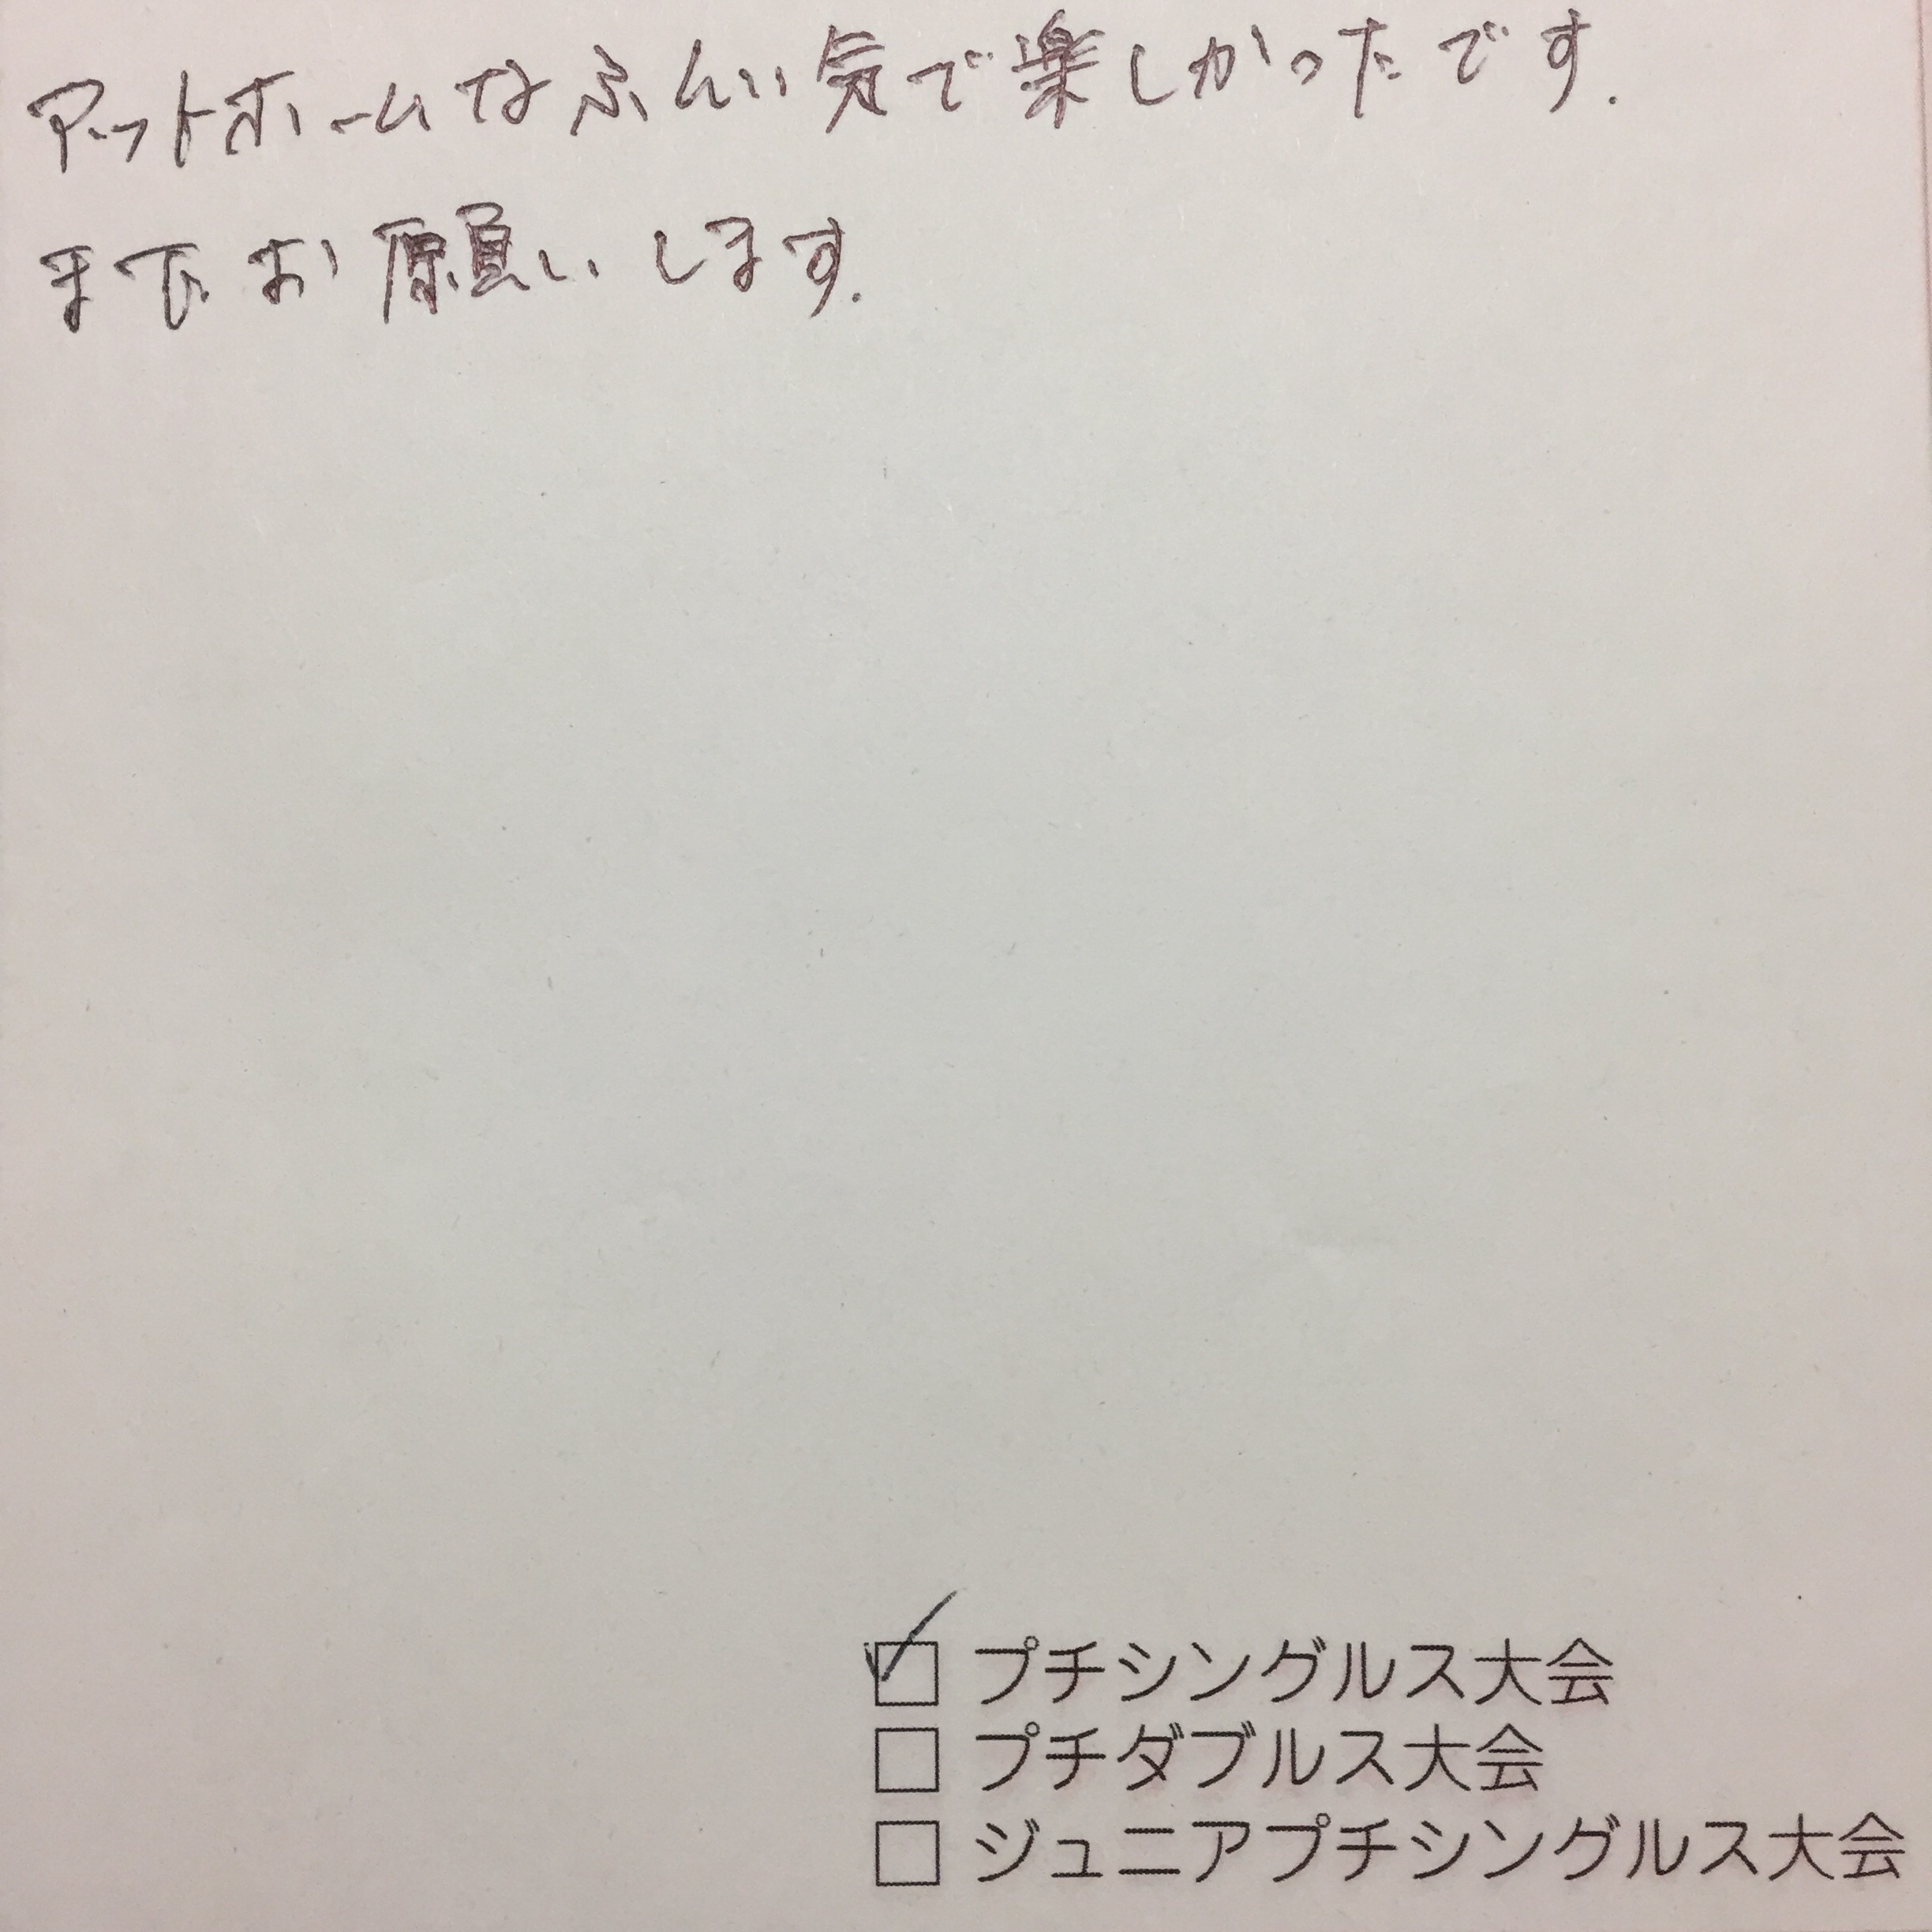 アットホームなふんい気で楽しかったです.
またお願いします.
☑ プチシングルス大会
□ プチダブルス大会
□ ジュニアプチシングルス大会